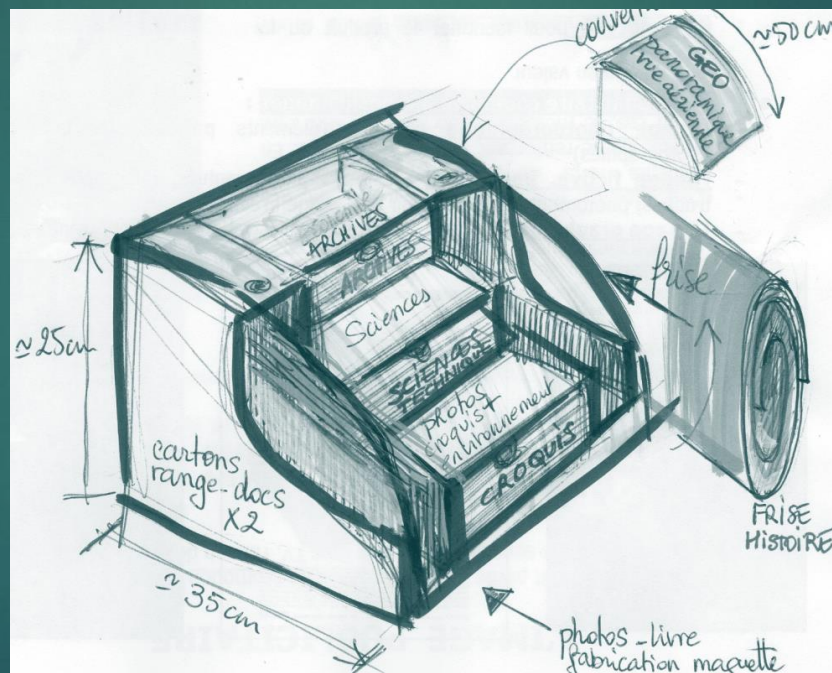 ≃50 cm
GEO
panoramique
vue aérienne
ARCHIVES
ARCHIVES
Sciences
SCIENCES
TECHNIQUE
photos
croquis +
environnement
CROQUIS
≃25cm
cartons
range-docs
X2
≃35cm
frise
FRISE
HISTOIRE
photos-livre
fabrication maquette